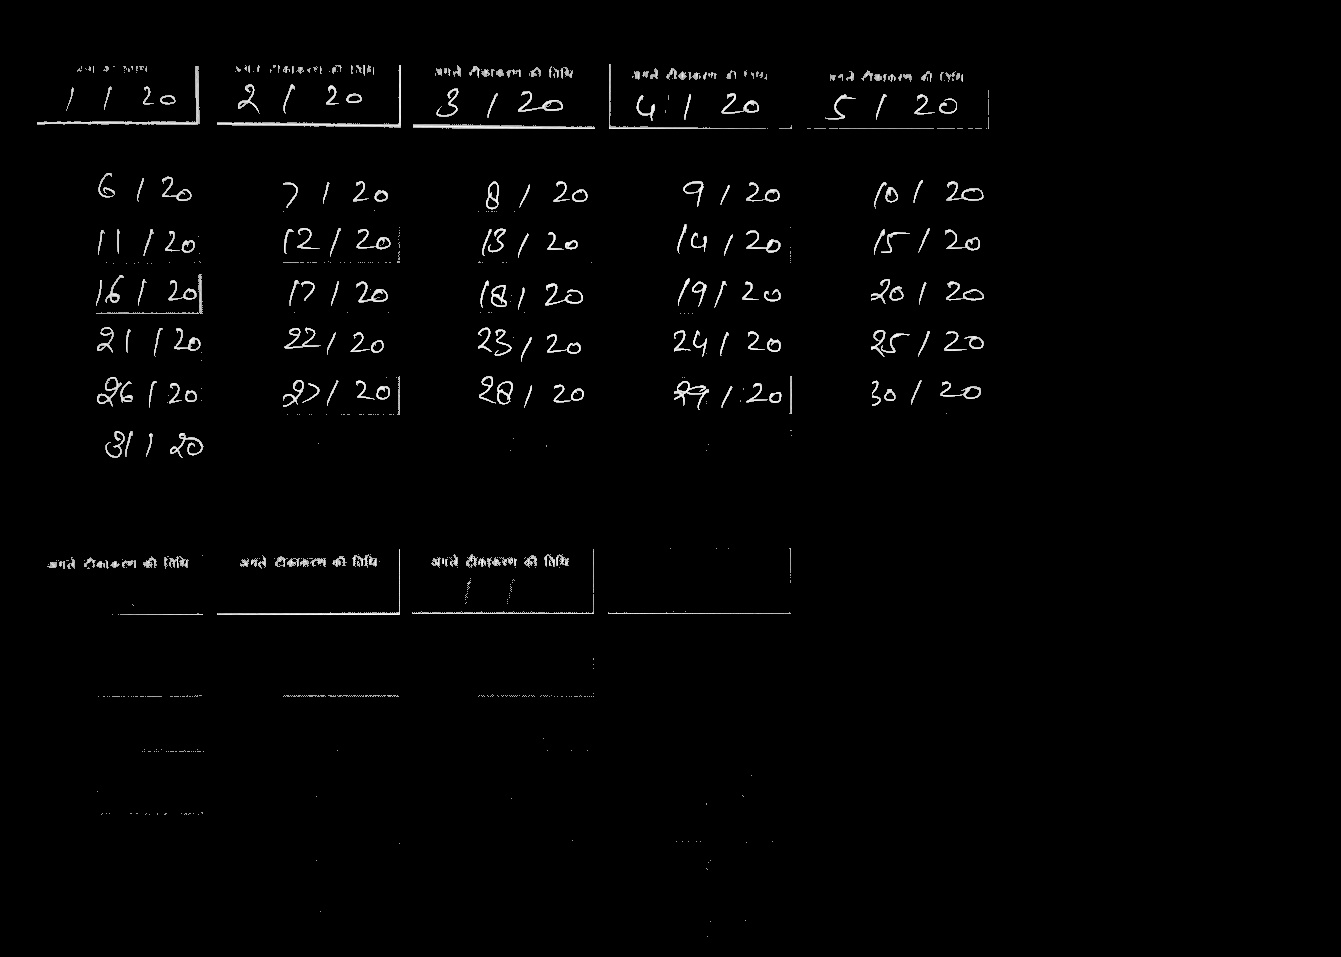 जन्म की तिथि अगले टीकाकरण की तिथि अगले टीकाकरण की तिथि अगले टीकाकरण की तिथि अगले टीकाकरण की तिथि
1 / 20 2 / 20 3 / 20 4 / 20 5 / 20
6 / 20 7 / 20 8 / 20 9 / 20 10 / 20
11 / 20 12 / 20 13 / 20 14 / 20 15 / 20
16 / 20 17 / 20 18 / 20 19 / 20 20 / 20
21 / 20 22 / 20 23 / 20 24 / 20 25 / 20
26 / 20 27 / 20 28 / 20 29 / 20 30 / 20
31 / 20
अगले टीकाकरण की तिथि अगले टीकाकरण की तिथि अगले टीकाकरण की तिथि
/ /